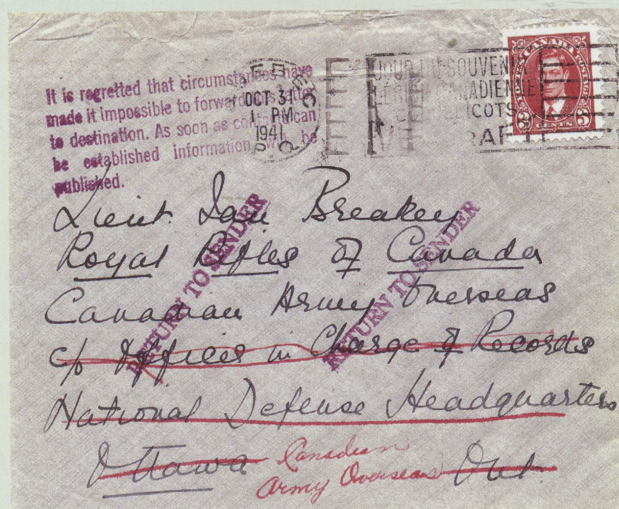 It is regretted that circumstances have
made it impossible to forward this letter
to destination. As soon as contact can
be established information will be
published.
QUEBEC
OCT 31
PM
1941
P. Q.
JOUR DU SOUVENIR
CANADIENNE
COQUELICOTS
CANADA POSTES
3 CENTS 3
Lieut. Ian Breakey
Royal Rifles of Canada
Canadian Army Overseas
c/o Officer in Charge of Records
National Defense Headquarters
Ottawa Ont.
Canadian
Army Overseas
RETURN TO SENDER
RETURN TO SENDER